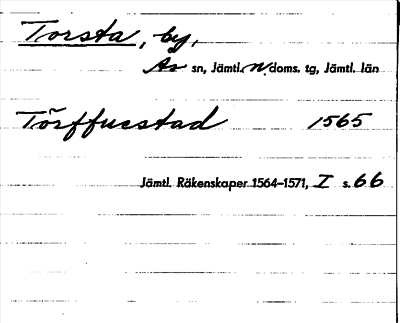 Torsta, by,
Ås sn, Jämtl. n. doms. tg, Jämtl. län
Törffuestad 1565
Jämtl. Räkenskaper 1564–1571, I s. 66